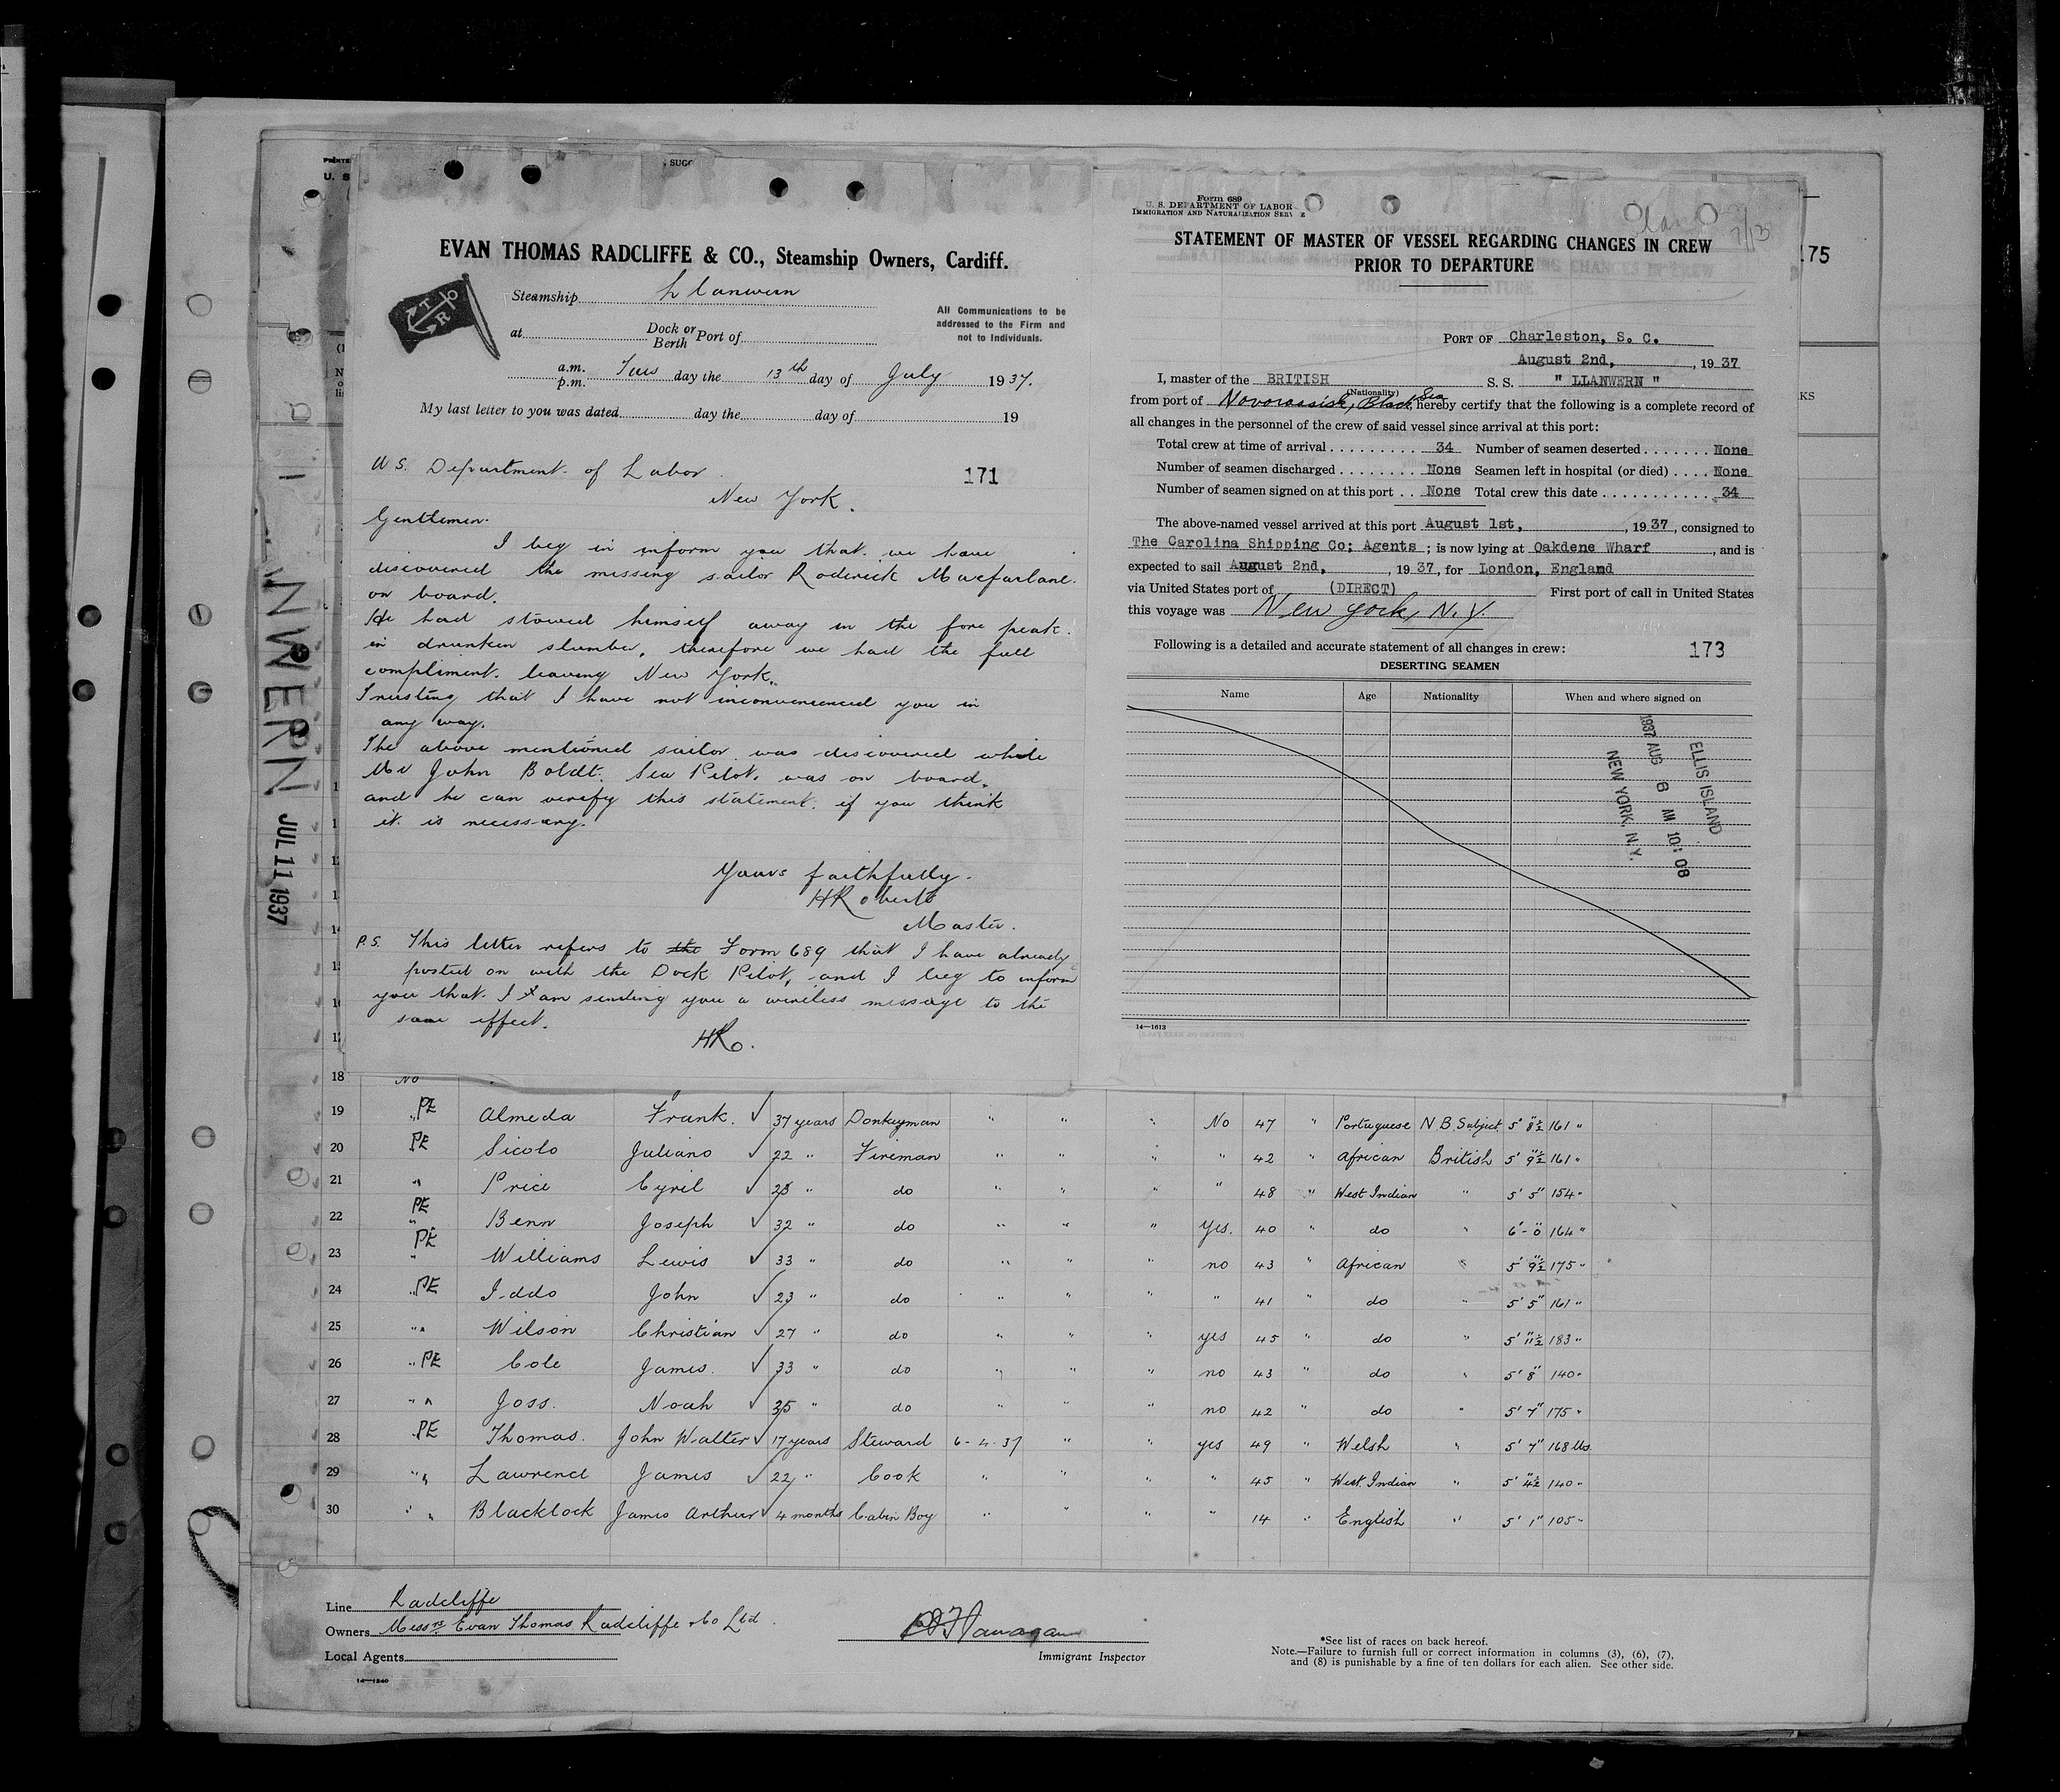 EVAN THOMAS RADCLIFFE & CO., Steamship Owners, Cardiff.
Steamship Llanwern
All Communications to be
addressed to the Firm and
not to Individuals.
at Dock or Berth Port of
a.m. p.m. Tues day the 13th day of July 1937.
My last letter to you was dated day the day of 19
U S. Department of Labor.
171
New York.
Gentlemen.
I beg in inform you that we have
discovered the missing sailor Roderick Macfarlane.
on board.
He had stowed himself away in the fore peak.
in drunken slumber, therefore we had the full
compliment. leaving New York.
Trusting that I have not inconvenienced you in
any way.
The above mentioned sailor was discovered while
Mr John Boldt. Sea Pilot. was on board,
and he can verefy this statement. if you think
it is necessary.
Yours faithfully.
HRoberts
Master.
P.S. This letter refers to the Form 689 that I have already
posted on with the Dock Pilot, and I beg to inform
you that I am sending you a wireless message to the
same effect.
HRo.
Form 689
U. S. DEPARTMENT OF LABOR
IMMIGRATION AND NATURALIZATION SERV E
STATEMENT OF MASTER OF VESSEL REGARDING CHANGES IN CREW
PRIOR TO DEPARTURE
175
PORT OF Charleston, S. C.
August 2nd, , 1937
I, master of the BRITISH S. S. " LLANWERN "
(Nationality)
from port of Novorossisk, Black Sea hereby certify that the following is a complete record of
all changes in the personnel of the crew of said vessel since arrival at this port:
Total crew at time of arrival 34 Number of seamen deserted None
Number of seamen discharged None Seamen left in hospital (or died) None
Number of seamen signed on at this port None Total crew this date 34
The above-named vessel arrived at this port August 1st, , 1937, consigned to
The Carolina Shipping Co; Agents ; is now lying at Oakdene Wharf , and is
expected to sail August 2nd, , 1937, for London, England
via United States port of (DIRECT) First port of call in United States
this voyage was New York, N. Y.
Following is a detailed and accurate statement of all changes in crew: 173
DESERTING SEAMEN
Name Age Nationality When and where signed on
ELLIS ISLAND
1937 AUG 6 AM 10:08
NEW YORK, N.Y.
14—1613
NWERN JUL 11 1937
18 No
19 " PE Almeda Frank. ✓ 37 years Donkeyman " " " No 47 " Portuguese N B. Subject 5' 8½" 161 "
20 PE Sicolo Juliano ✓ 22 " Fireman " " " " 42 " African British 5' 9½" 161 "
21 " Price Cyril ✓ 23 " do " " " " 48 " West Indian " 5' 5" 154 "
22 PE " Benn Joseph ✓ 32 " do " " " Yes. 40 " do " 6'-0" 164 "
23 PE " Williams Lewis ✓ 33 " do " " " no 43 " African " 5' 9½" 175 "
24 " PE Iddo John ✓ 23 " do " " " " 41 " do " 5' 5" 161 "
25 " " Wilson Christian ✓ 27 " do " " " yes 45 " do " 5' 11½" 183 "
26 " PE Cole James. ✓ 33 " do " " " no 43 " do " 5' 8" 140 "
27 " " Joss. Noah ✓ 35 " do " " " no 42 " do " 5' 7" 175 "
28 PE Thomas. John Walter ✓ 17 years Steward 6-4-37 " " yes 49 " Welsh " 5' 7" 168 lbs
29 " " Lawrence James ✓ 22 " Cook " " " " 45 " West Indian " 5' 4½" 140 "
30 " " Blacklock James Arthur ✓ 4 months Cabin Boy " " " " 14 " English " 5' 1" 105 "
Line Radcliffe
Owners Messrs Evan Thomas Radcliffe & Co Ltd.
Local Agents
14—1240
Immigrant Inspector
*See list of races on back hereof.
Note.—Failure to furnish full or correct information in columns (3), (6), (7),
and (8) is punishable by a fine of ten dollars for each alien. See other side.